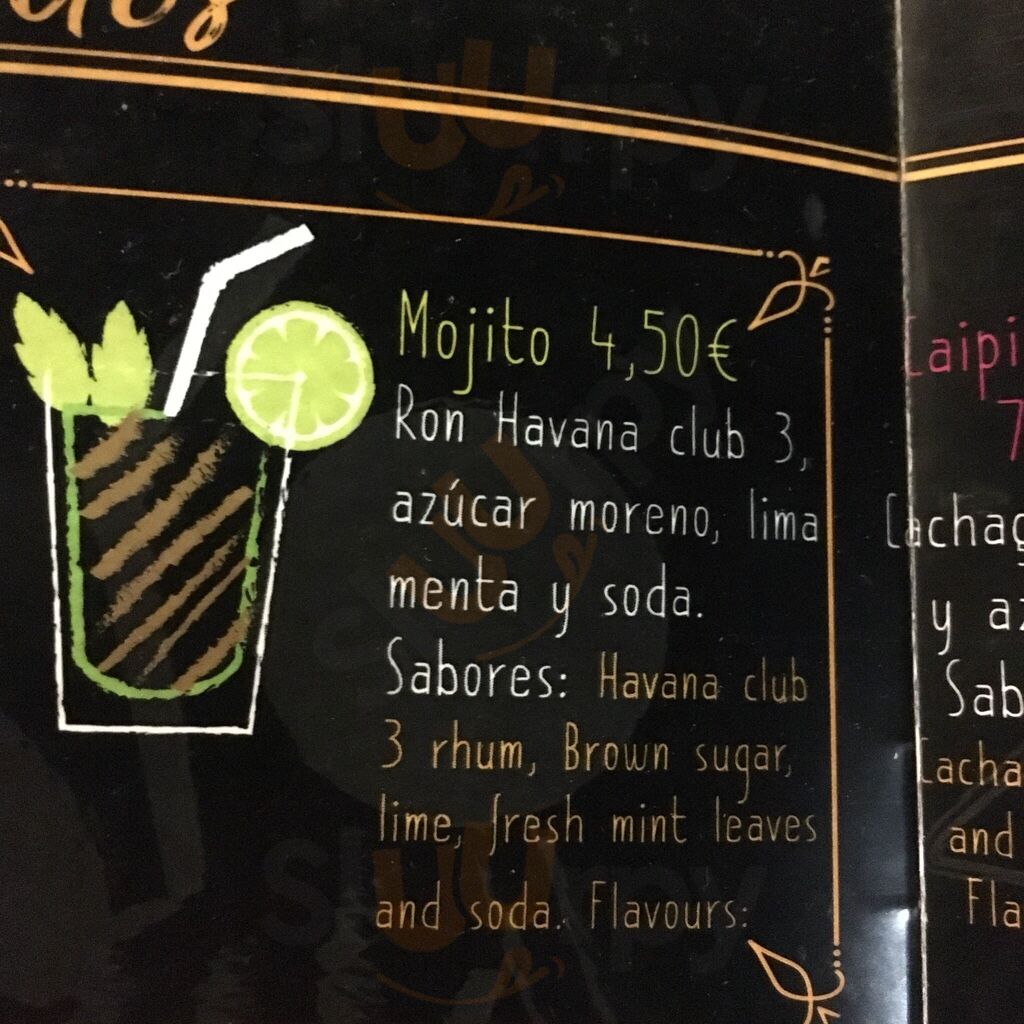 Mojito 4,50€
Ron Havana club 3,
azúcar moreno, lima
menta y soda.
Sabores: Havana club
3 rhum, Brown sugar,
lime, fresh mint leaves
and soda. Flavours:
Caipi
7
Cachaç
y az
Sab
Cacha
and
Fla
sluurpy
sluurpy
sluurpy